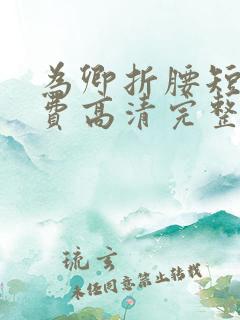 为卿折腰短
费高清完整
琉玄
未经同意禁止转载